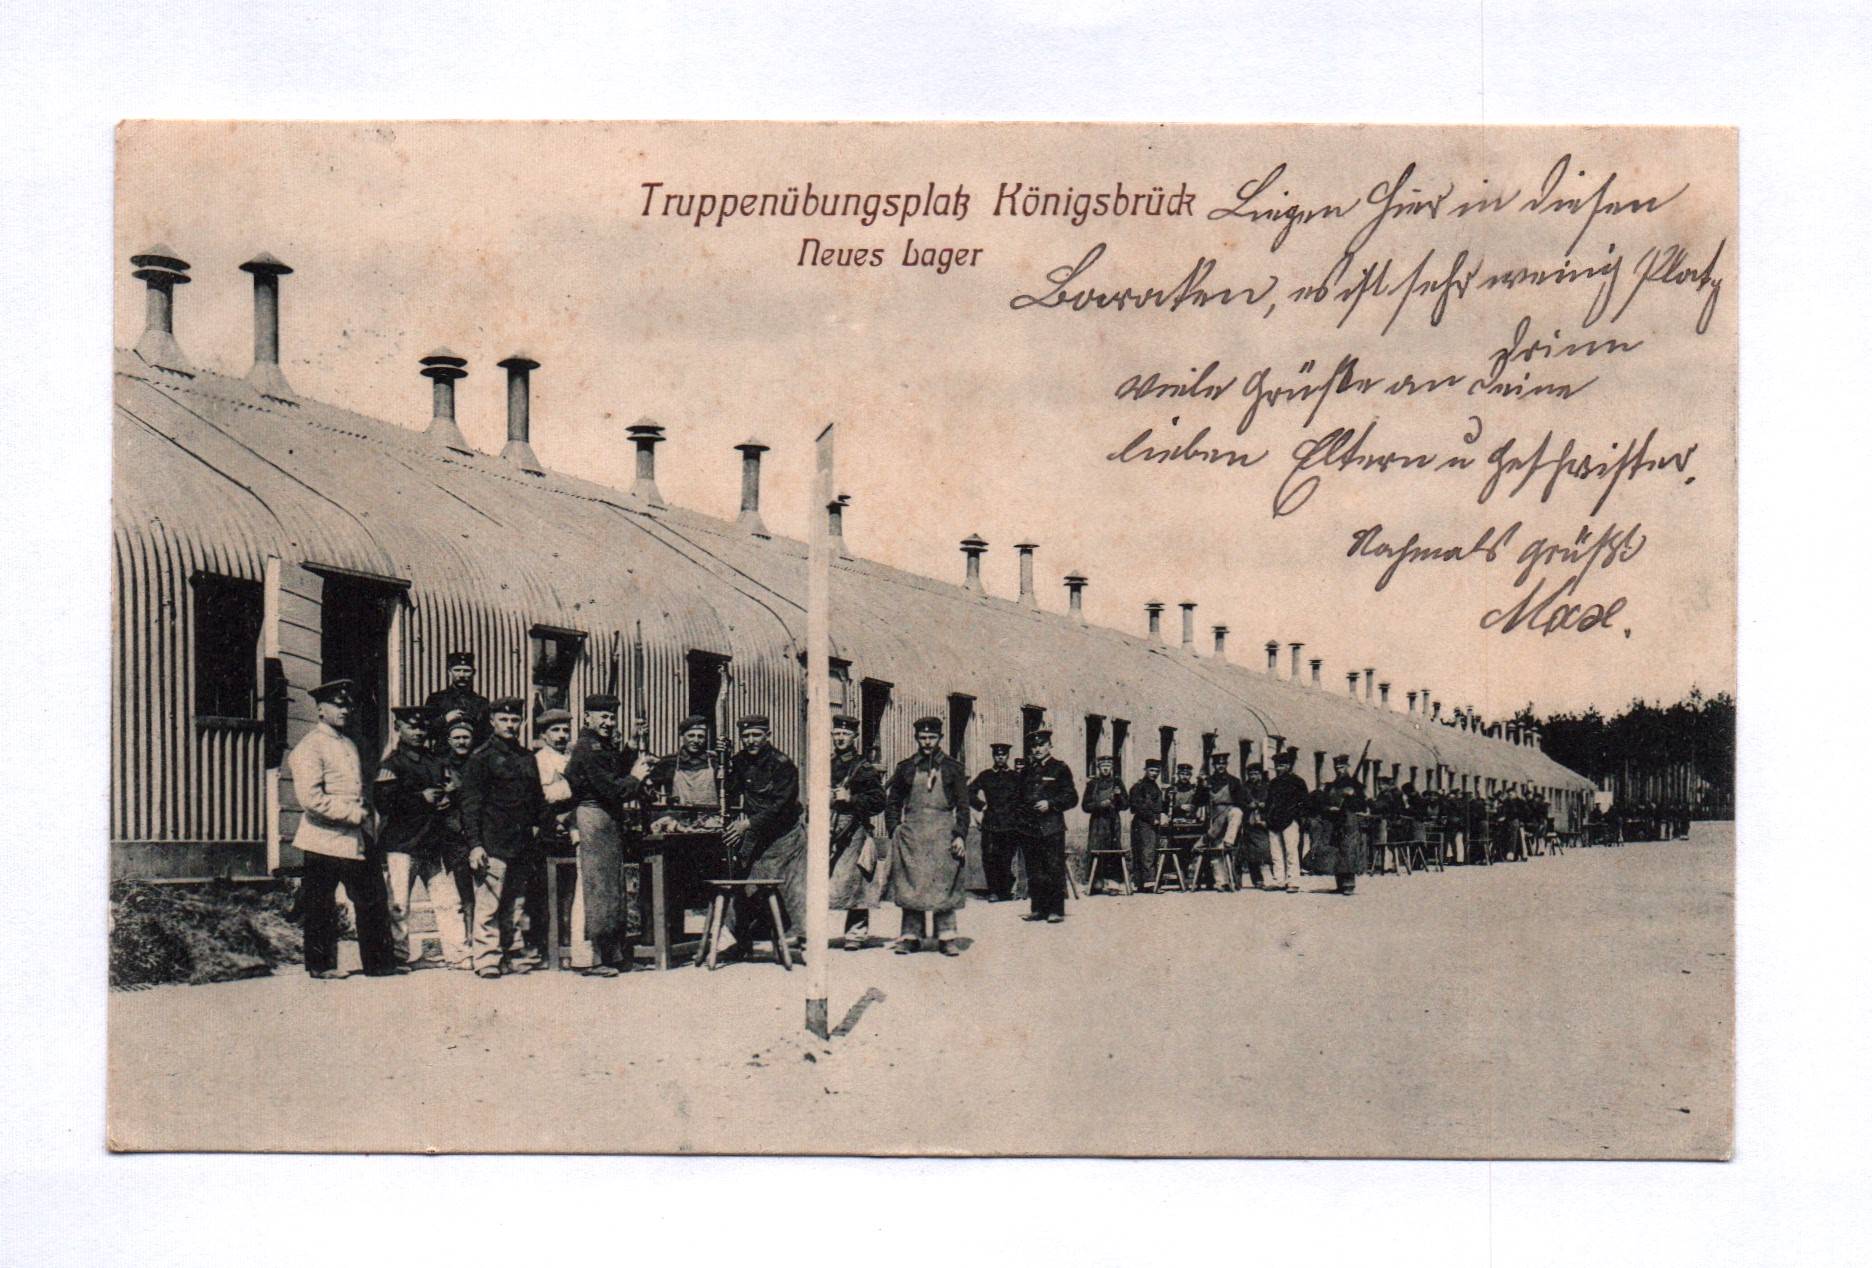 Truppenübungsplatz Königsbrück
Neues Lager
Liegen hier in diesen
Baraken, es ist sehr wenig Platz
drinn
viele Grüße an deine
lieben Eltern u Geschwister.
Nochmals grüßt
Max.